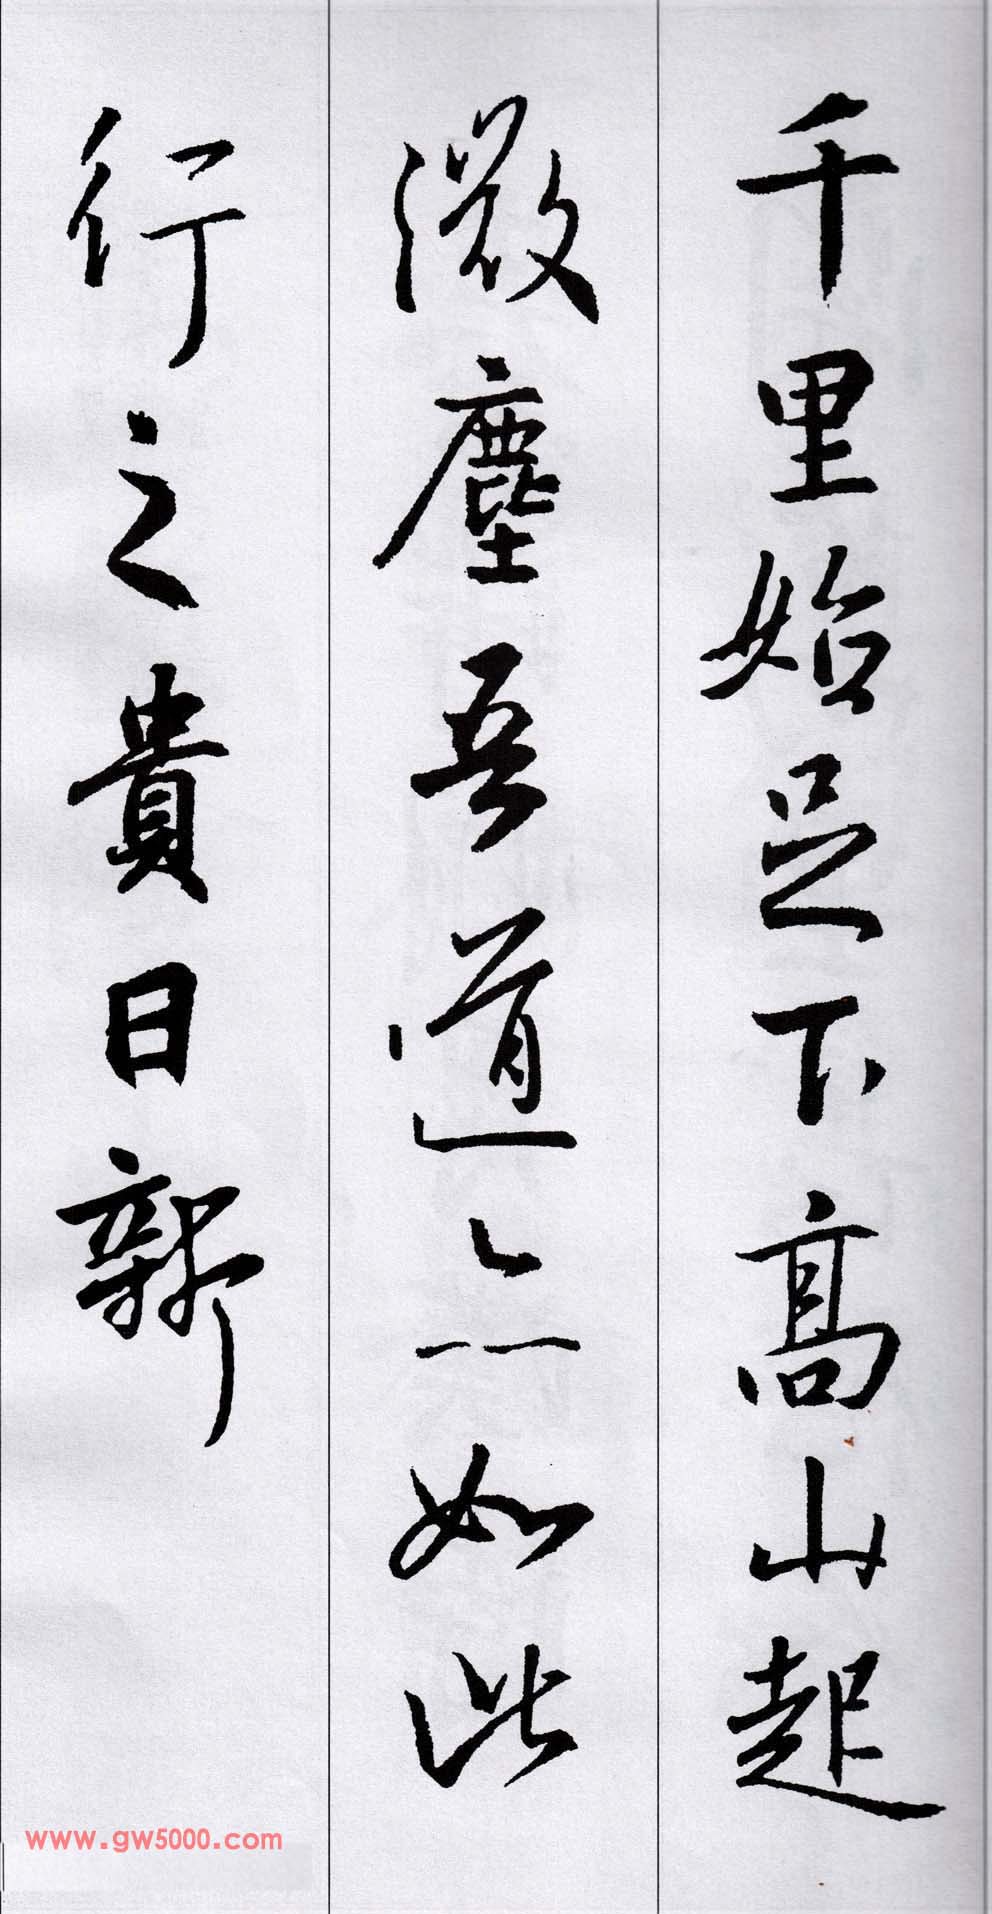 千里始足下高山起
微塵吾道亦如此
行之貴日新
www.gw5000.com